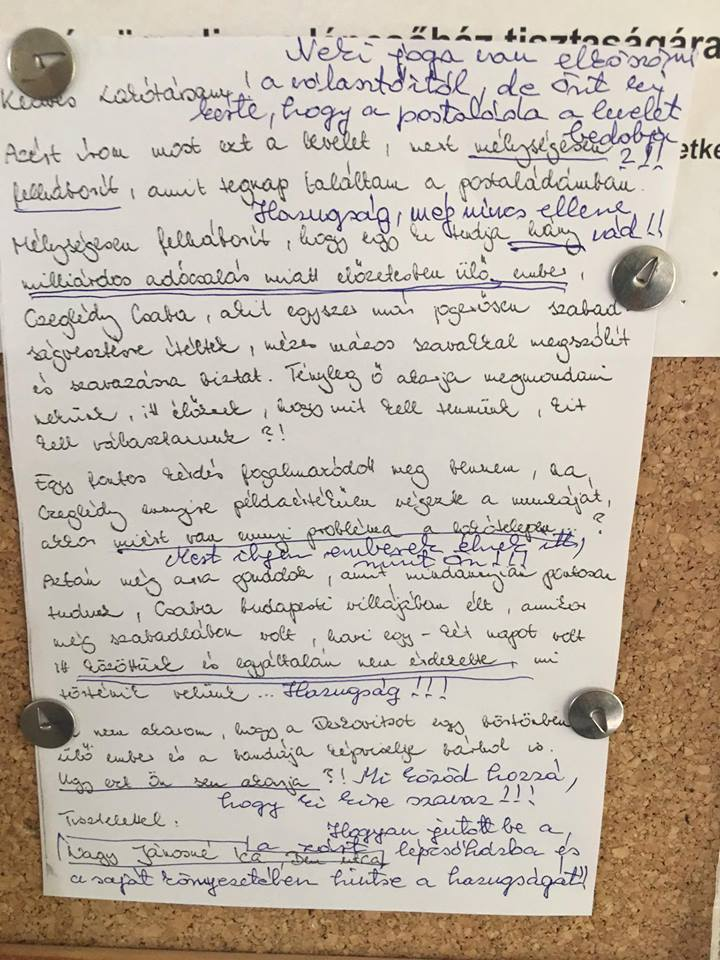 lépcsőház tisztaságára
Neki joga van elköszönni
Kedves Lakótársam! a választóitól, de Önt ki
kérte, hogy a postaládába a levelet
bedobja
Azért írom most ezt a levelet, mert mélységesen ?!!
felháborít, amit tegnap találtam a postaládámban.
Hazugság, még nincs ellene
Mélységesen felháborít, hogy egy ki tudja hány vád!!
milliárdos adócsalás miatt előzetesben ülő ember,
Czeglédy Csaba, akit egyszer már jogerősen szabad
ságvesztésre ítéltek, mézes mázos szavakkal megszólít
és szavazásra biztat. Tényleg ő akarja megmondani
nekünk, itt élőknek, hogy mit kell tennünk, kit
kell választanunk ?!
Egy fontos kérdés fogalmazódott meg bennem, ha
Czeglédy ennyire példaértékűen végezte a munkáját,
akkor miért van ennyi probléma a lakótelepen...?
Mert ilyen emberek élnek itt,
mint Ön!!!
Aztán még arra gondolok, amit mindannyian pontosan
tudunk, Csaba budapesti villájában élt, amikor
még szabadlábon volt, havi egy-két napot volt
itt közöttünk és egyáltalán nem érdekelte, mi
történik velünk... Hazugság!!!
nem akarom, hogy a Derkovitsot egy börtönben
ülő ember és a bandája képviselje bárhol is.
Ugye ezt Ön sem akarja ?! Mi közöd hozzá,
hogy ki kire szavaz!!!
Tisztelettel: Hogyan jutott be a
Nagy Jánosné Ica, a zárt lépcsőházba és
a saját környezetében hintse a hazugságát!!